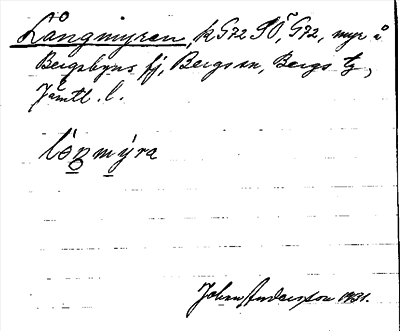 Långmyren, k G72 SÖ, G72, myr å
Bergsbyns fj, Bergs sn, Bergs tg,
Jämtl. l.
lòŋmýra
Johan Andersson 1931.